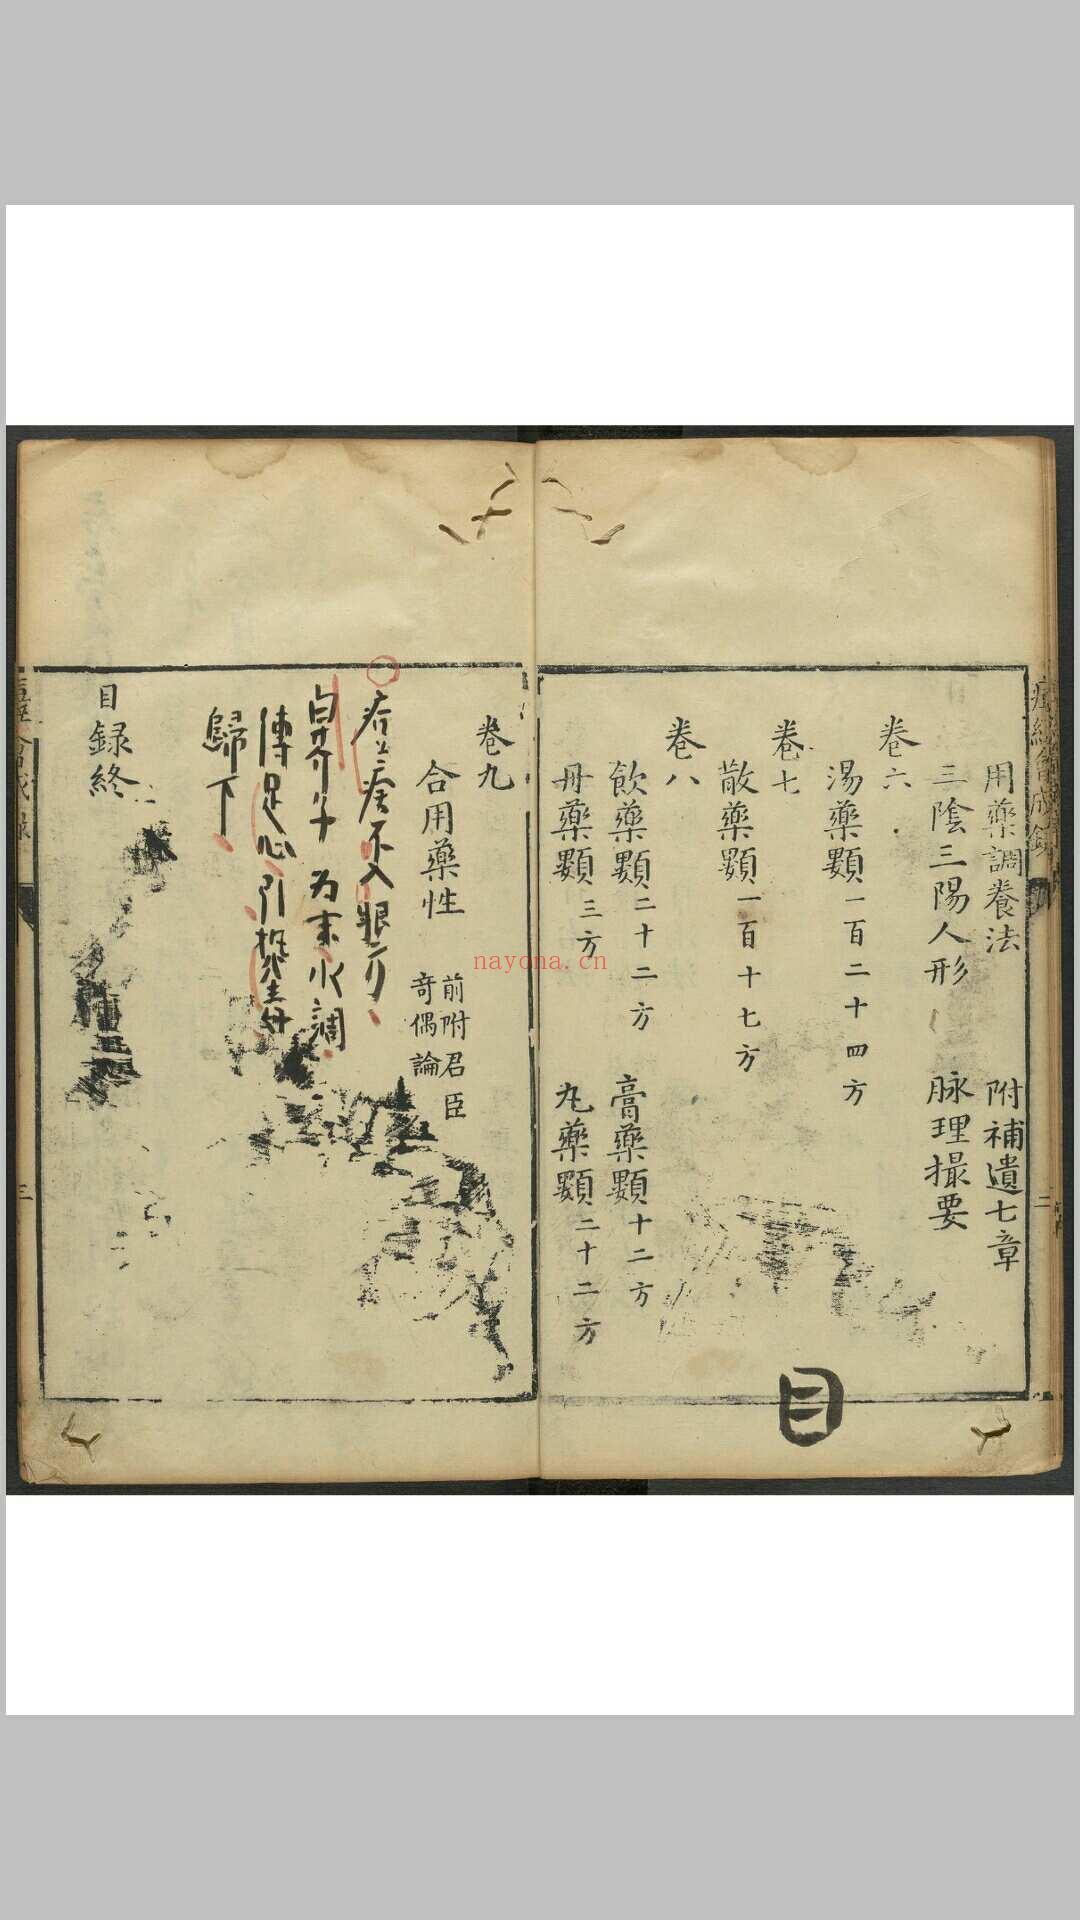 用藥調養法 附補遺七章
三陰三陽人形 脉理撮要
卷六
湯藥類一百二十四方
卷七
散藥類一百十七方
卷八
飲藥類二十二方 膏藥類十二方
丹藥類三方 丸藥類二十二方
目
卷九
合用藥性 前附君臣
奇偶論
不入眼方
白芥子为末水調
傅足心引
歸下
目録終
nayona.cn